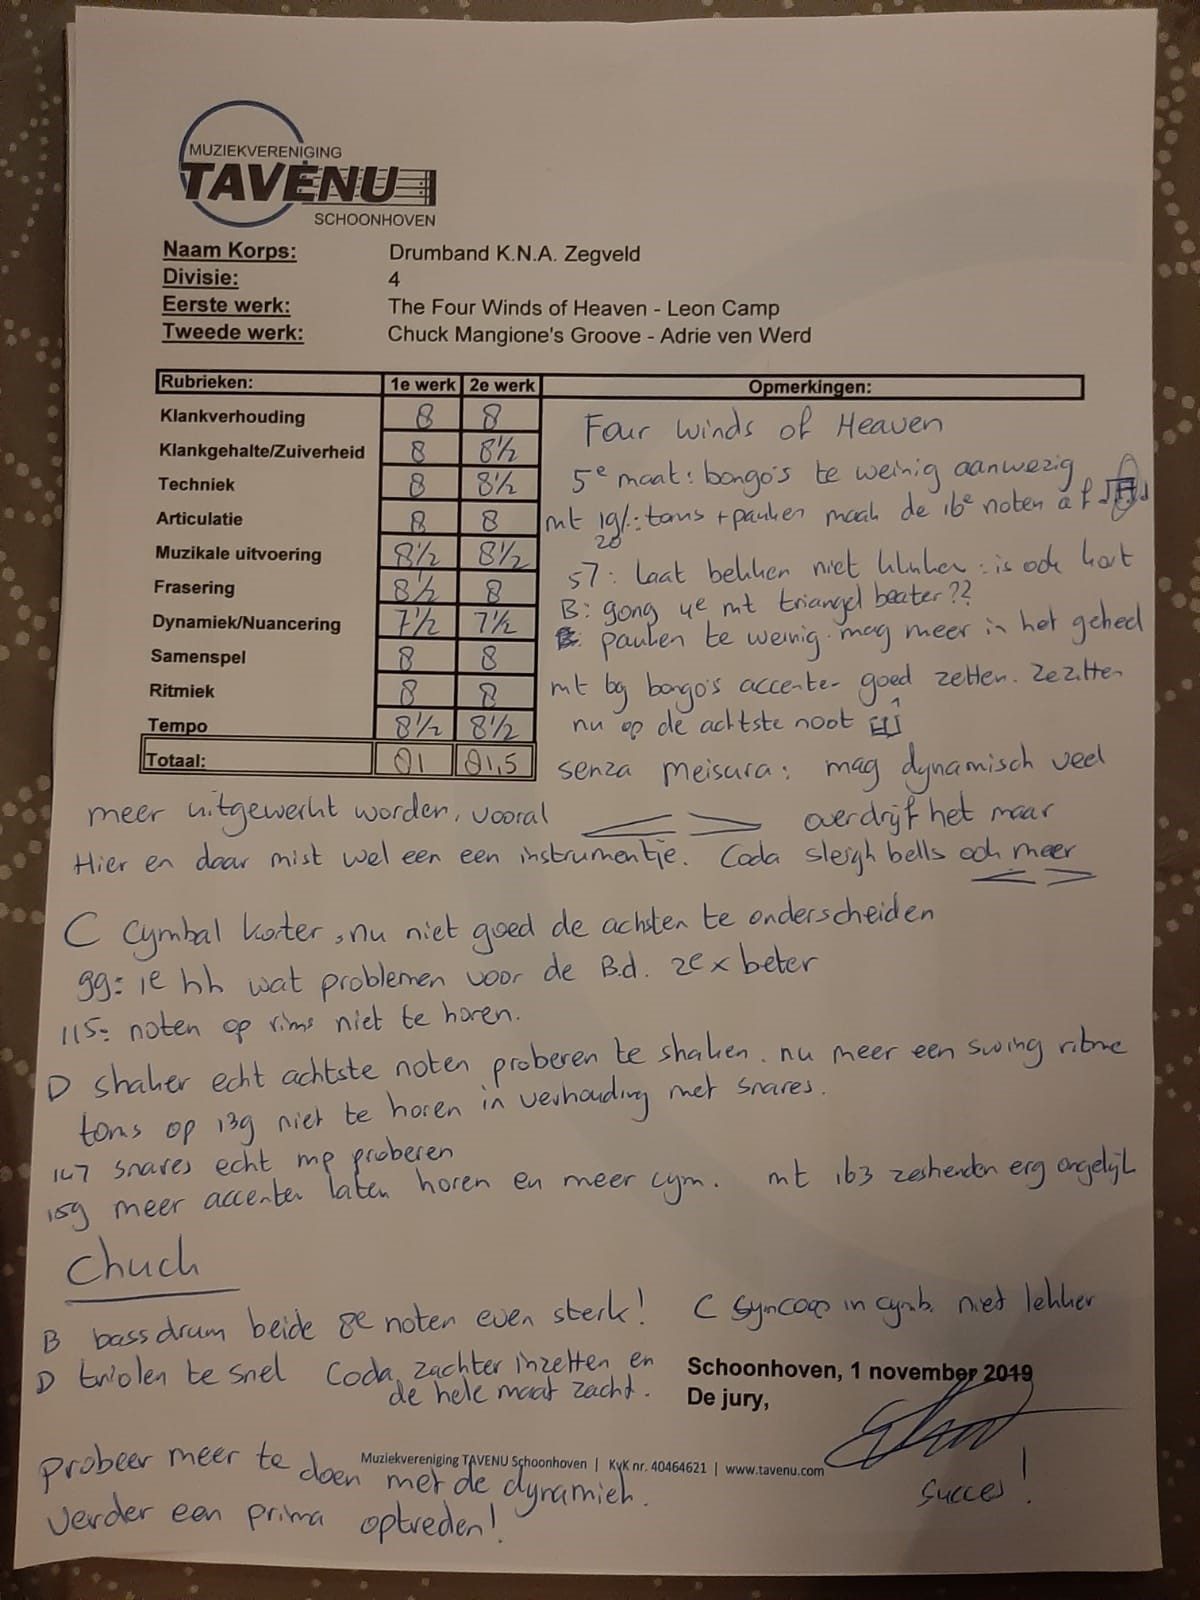 MUZIEKVERENIGING
TAVENU
SCHOONHOVEN
Naam Korps: Drumband K.N.A. Zegveld
Divisie: 4
Eerste werk: The Four Winds of Heaven - Leon Camp
Tweede werk: Chuck Mangione's Groove - Adrie ven Werd
Rubrieken: 1e werk 2e werk Opmerkingen:
Klankverhouding 8 8
Klankgehalte/Zuiverheid 8 8½
Techniek 8 8½
Articulatie 8 8
Muzikale uitvoering 8½ 8½
Frasering 8½ 8
Dynamiek/Nuancering 7½ 7½
Samenspel 8 8
Ritmiek 8 8
Tempo 8½ 8½
Totaal: 81 81,5
Four Winds of Heaven
5e maat: bongo's te weinig aanwezig
mt 19/20: toms + pauken maak de 16e noten af
57: laat bekken niet klinken: is ook kort
B: gong 4e mt triangel beater??
pauken te weinig. mag meer in het geheel
mt 69 bongo's accenten goed zetten. Ze zitten
nu op de achtste noot
senza meisura: mag dynamisch veel
meer uitgewerkt worden, vooral < > overdrijf het maar
Hier en daar mist wel een een instrumentje. Coda sleigh bells ook meer
< >
C Cymbal korter, nu niet goed de achsten te onderscheiden
99: 1e hh wat problemen voor de B.d. 2e x beter
115: noten op rims niet te horen.
D shaker echt achtste noten proberen te shaken. nu meer een swing ritme
toms op 139 niet te horen in verhouding met snares.
147 snares echt mp proberen
159 meer accenten laten horen en meer cym. mt 163 zestienden erg ongelijk
Chuck
B bassdrum beide 8e noten even sterk! C Syncoop in cymb. niet lekker
D triolen te snel Coda, zachter inzetten en
de hele maat zacht.
Schoonhoven, 1 november 2019
De jury,
Muziekvereniging TAVENU Schoonhoven | KvK nr. 40464621 | www.tavenu.com
Probeer meer te doen met de dynamiek.
Verder een prima optreden!
Succes!